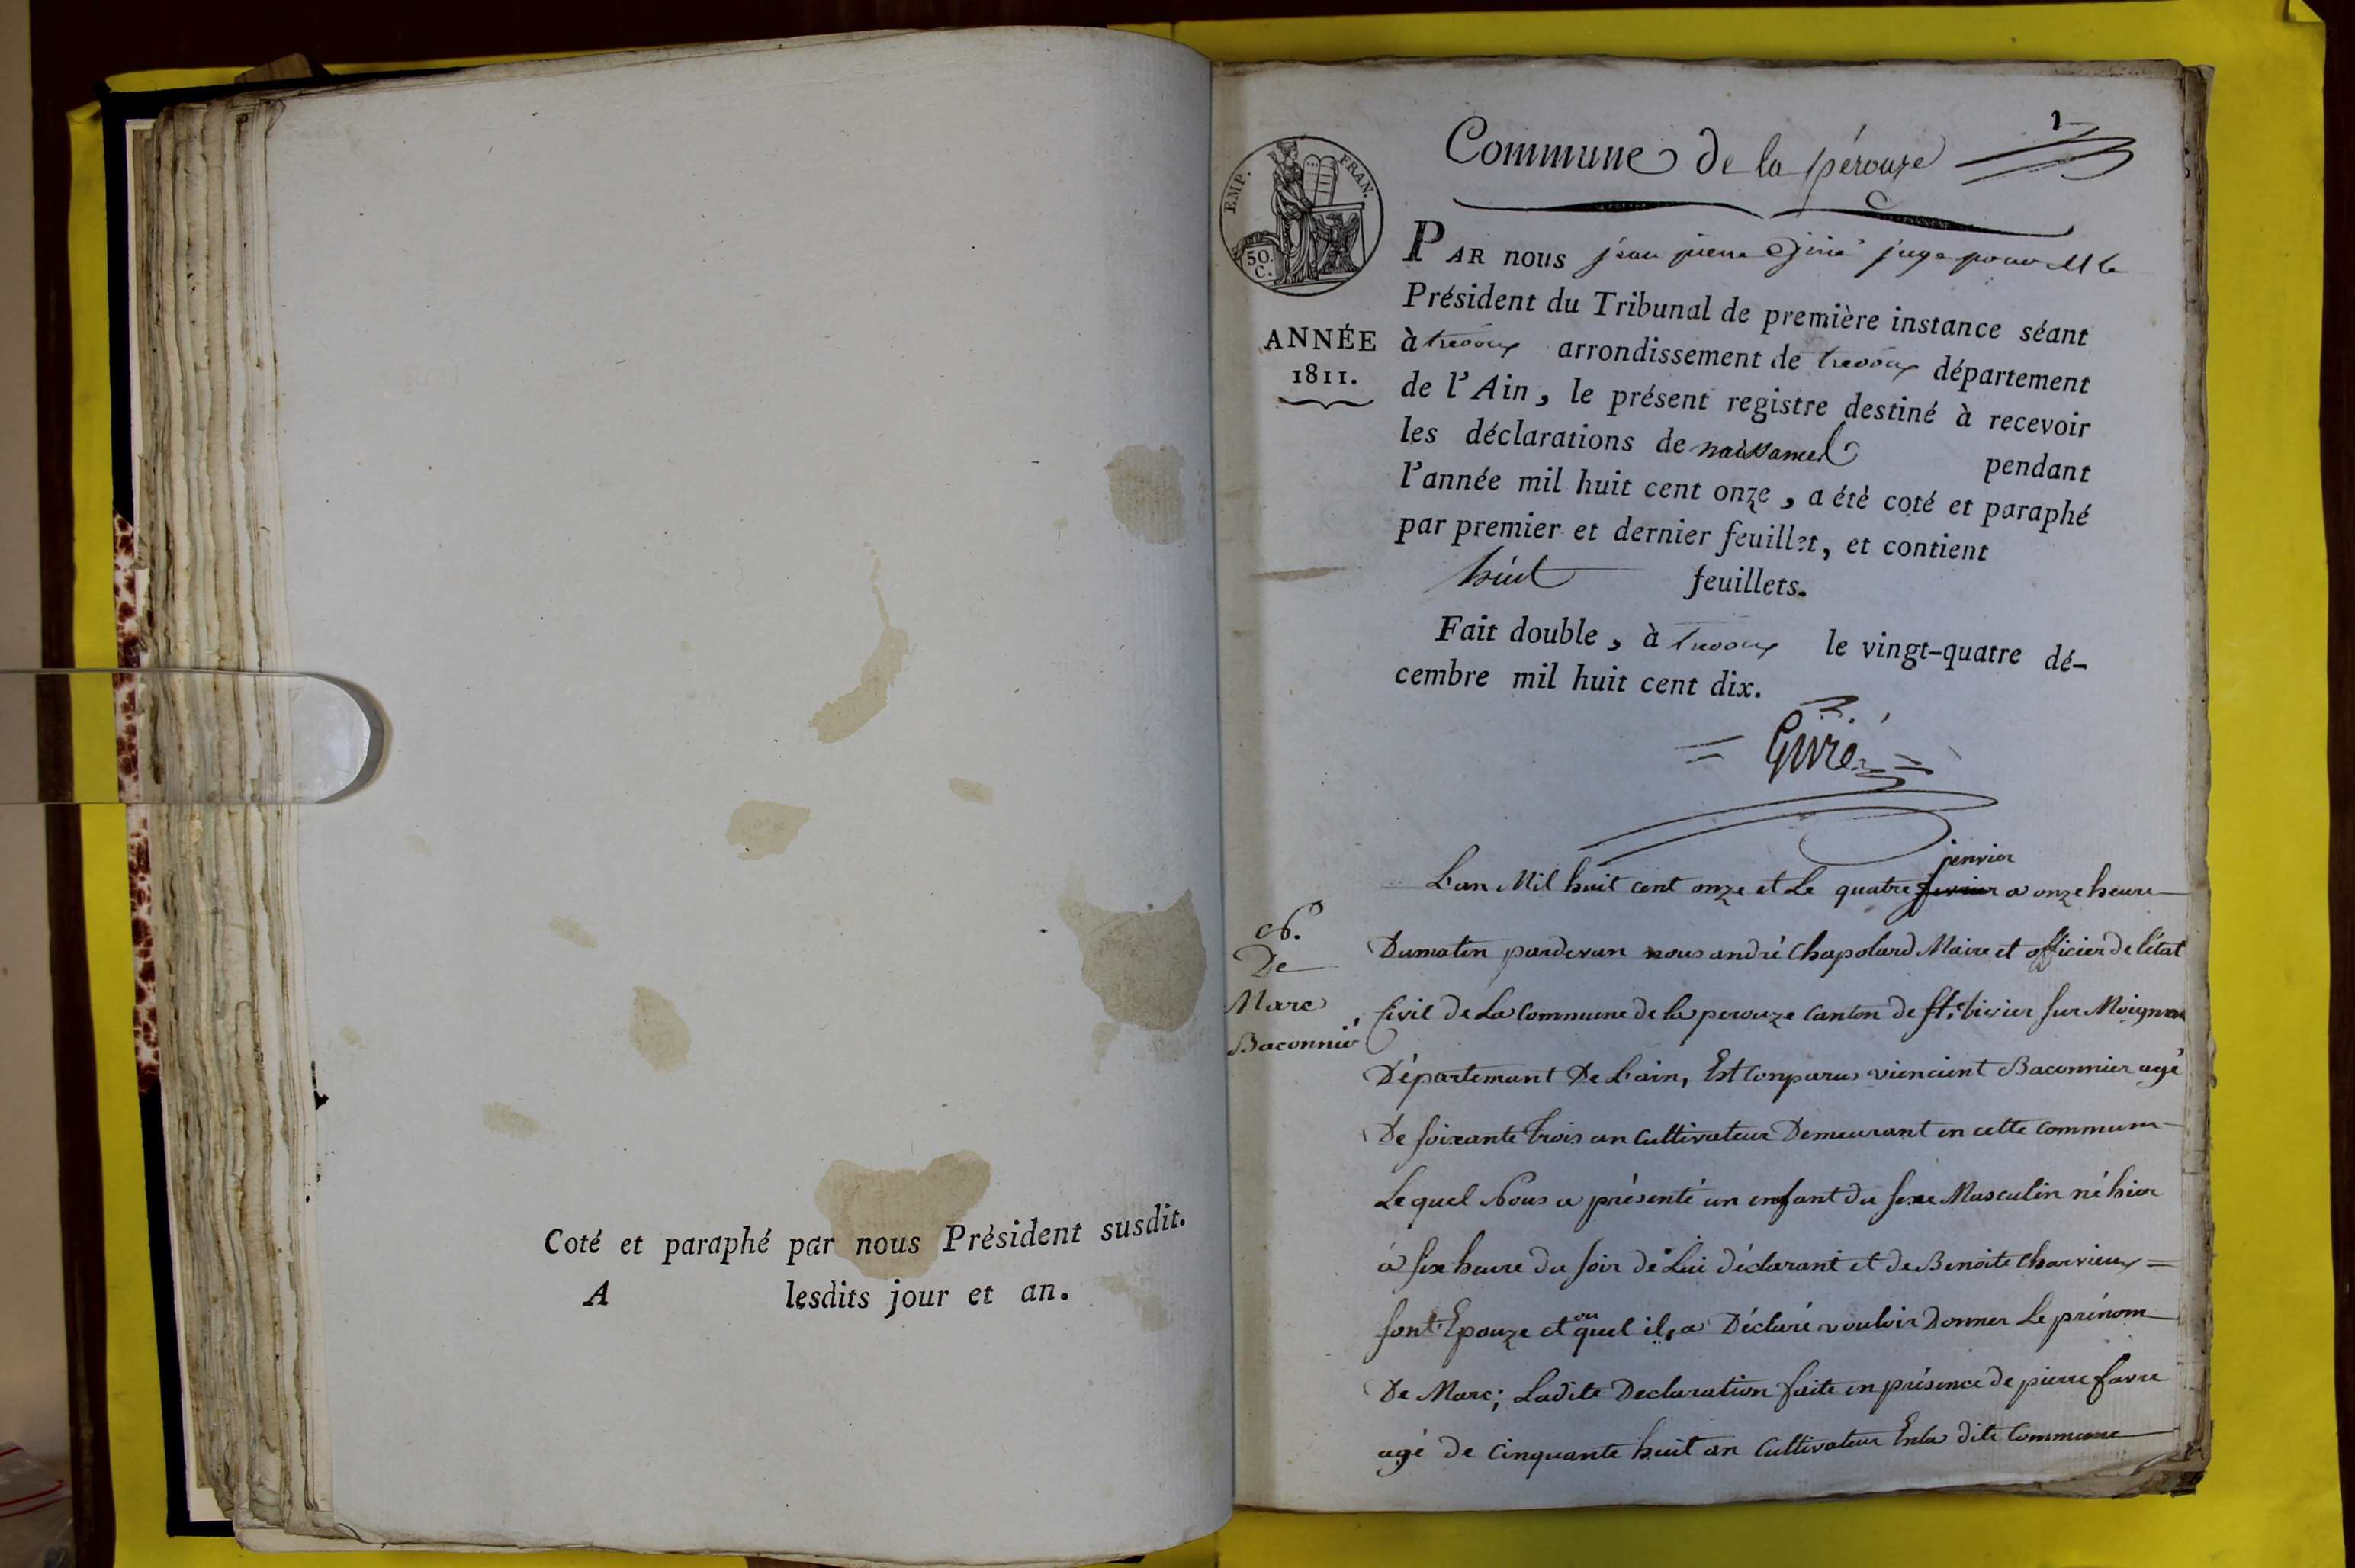 Coté et paraphé par nous Président susdit.
A lesdits jour et an.
1
Commune de la pérouze
EMP. FRAN.
50.
C.
ANNÉE
1811.
PAR nous jean pierre Giiré juge pour M le
Président du Tribunal de première instance séant
à trevoux arrondissement de trevoux département
de l'Ain, le présent registre destiné à recevoir
les déclarations de naissances pendant
l'année mil huit cent onze, a été coté et paraphé
par premier et dernier feuillet, et contient
huit feuillets.
Fait double, à Trevoux le vingt-quatre dé-
cembre mil huit cent dix.
Giiré
N.
De
Marc
Baconnié
jenvier
L'an Mil huit cent onze et Le quatre a onze heure
Dumatin pardevan nous andré Chapolard Maire et officier de l'état
Civil de La Commune de la perouze Canton de St. trivier sur Moignan
Départemant De L'ain, Est Conparus viencient Baconnier agé
De soixante trois an Cultivateur Demeurant en cette commune
Le quel Nous a présenté un enfant du sexe Masculin né hier
à six heure du soir de Lui déclarant et de Benoite Charvieux =
sont Epouze et au quel il, a Déclaré vouloir Donner Le prénom
De Marc; Ladite Declaration faite en présence de pierre favre
agé de Cinquante huit an Cultivateur En la dite Commune